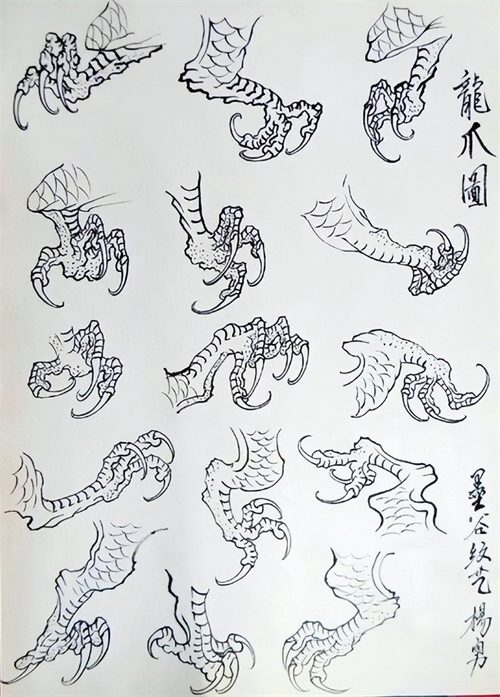 龍爪圖
墨谷紋艺楊勇